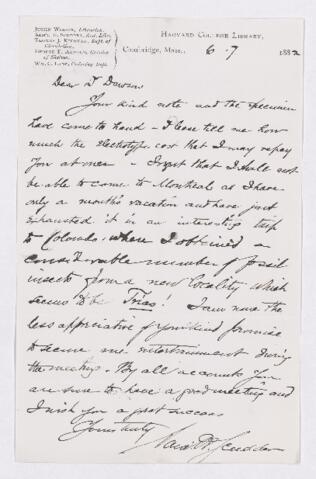 JUSTIN WINSOR, Librarian.
HARVARD COLLEGE LIBRARY,
Cambridge, Mass., 6. 7 1882
Dear Dr Dawson
Your kind note and the specimen
have come to hand - Please tell me how
much the electrotypes cost that I may repay
you at once - I regret that I shall not
be able to come to Montreal as I have
only a month's vacation and have just
exhausted it in an interesting trip
to Colorado where I obtained a
considerable number of fossil
insects from a new locality which
seems to be Trias! I am none the
less appreciative of your kind promise
to secure me entertainment during
the meeting. By all accounts you
are sure to have a good meeting and
I wish you a great success
Yours truly
Samuel H. Scudder